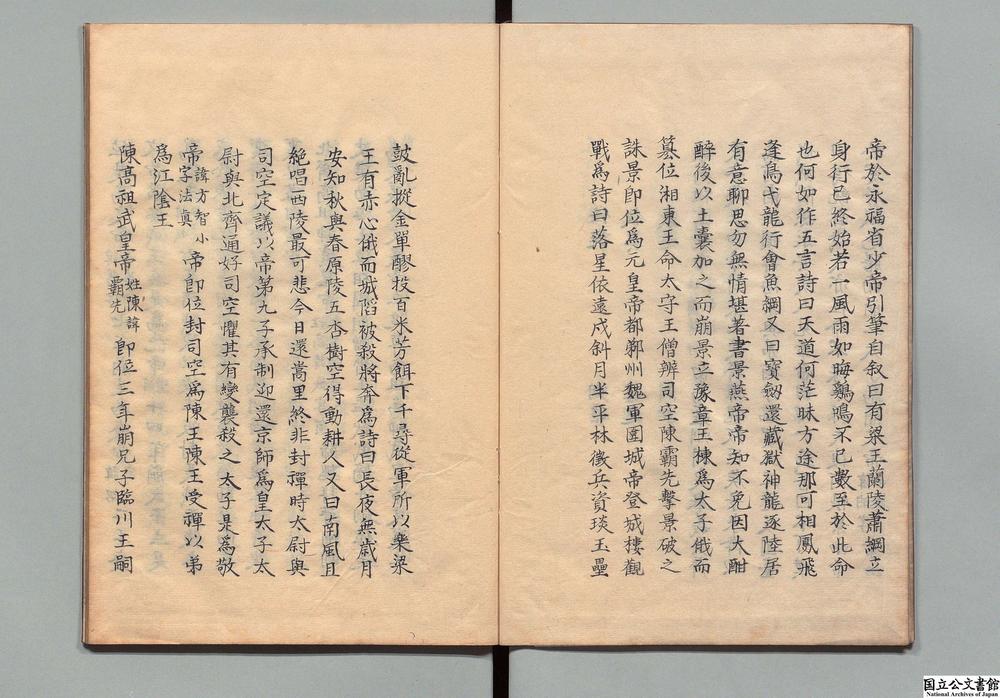 帝於永福省少帝引筆自叙曰有梁王蘭陵蕭綱立
身行已終始若一風雨如晦鷄鳴不已數至於此命
也何如作五言詩曰天道何茫昧方途那可相鳳飛
逢鳥弋龍行會魚綱又曰寶劔還藏獄神龍逐陸居
有意聊思勿無情堪著書景燕帝帝知不免因大酣
醉後以土囊加之而崩景立豫章王棟為太子俄而
簒位湘東王命太守王僧辨司空陳霸先擊景破之
誅景即位為元皇帝都鄴州魏軍圍城帝登城樓觀
戰為詩曰落星依遠戍斜月半平林徵兵資琰玉壘
鼓亂摐金單醪投百米芳餌下千尋從軍所以樂梁
王有赤心俄而城䧟被殺將奔為詩曰長夜無歲月
安知秋與春原陵五杏樹空得動耕人又曰南風且
絶唱西陵最可悲今日還嵩里終非封禪時太尉與
司空定議以帝第九子承制迎還京師為皇太子太
尉與北齊通好司空懼其有變襲殺之太子是為敬
帝諱方智小字法真帝即位封司空為陳王陳王受禪以弟
為江陰王
陳高祖武皇帝姓陳諱霸先即位三年崩兄子臨川王嗣
国立公文書館
National Archives of Japan